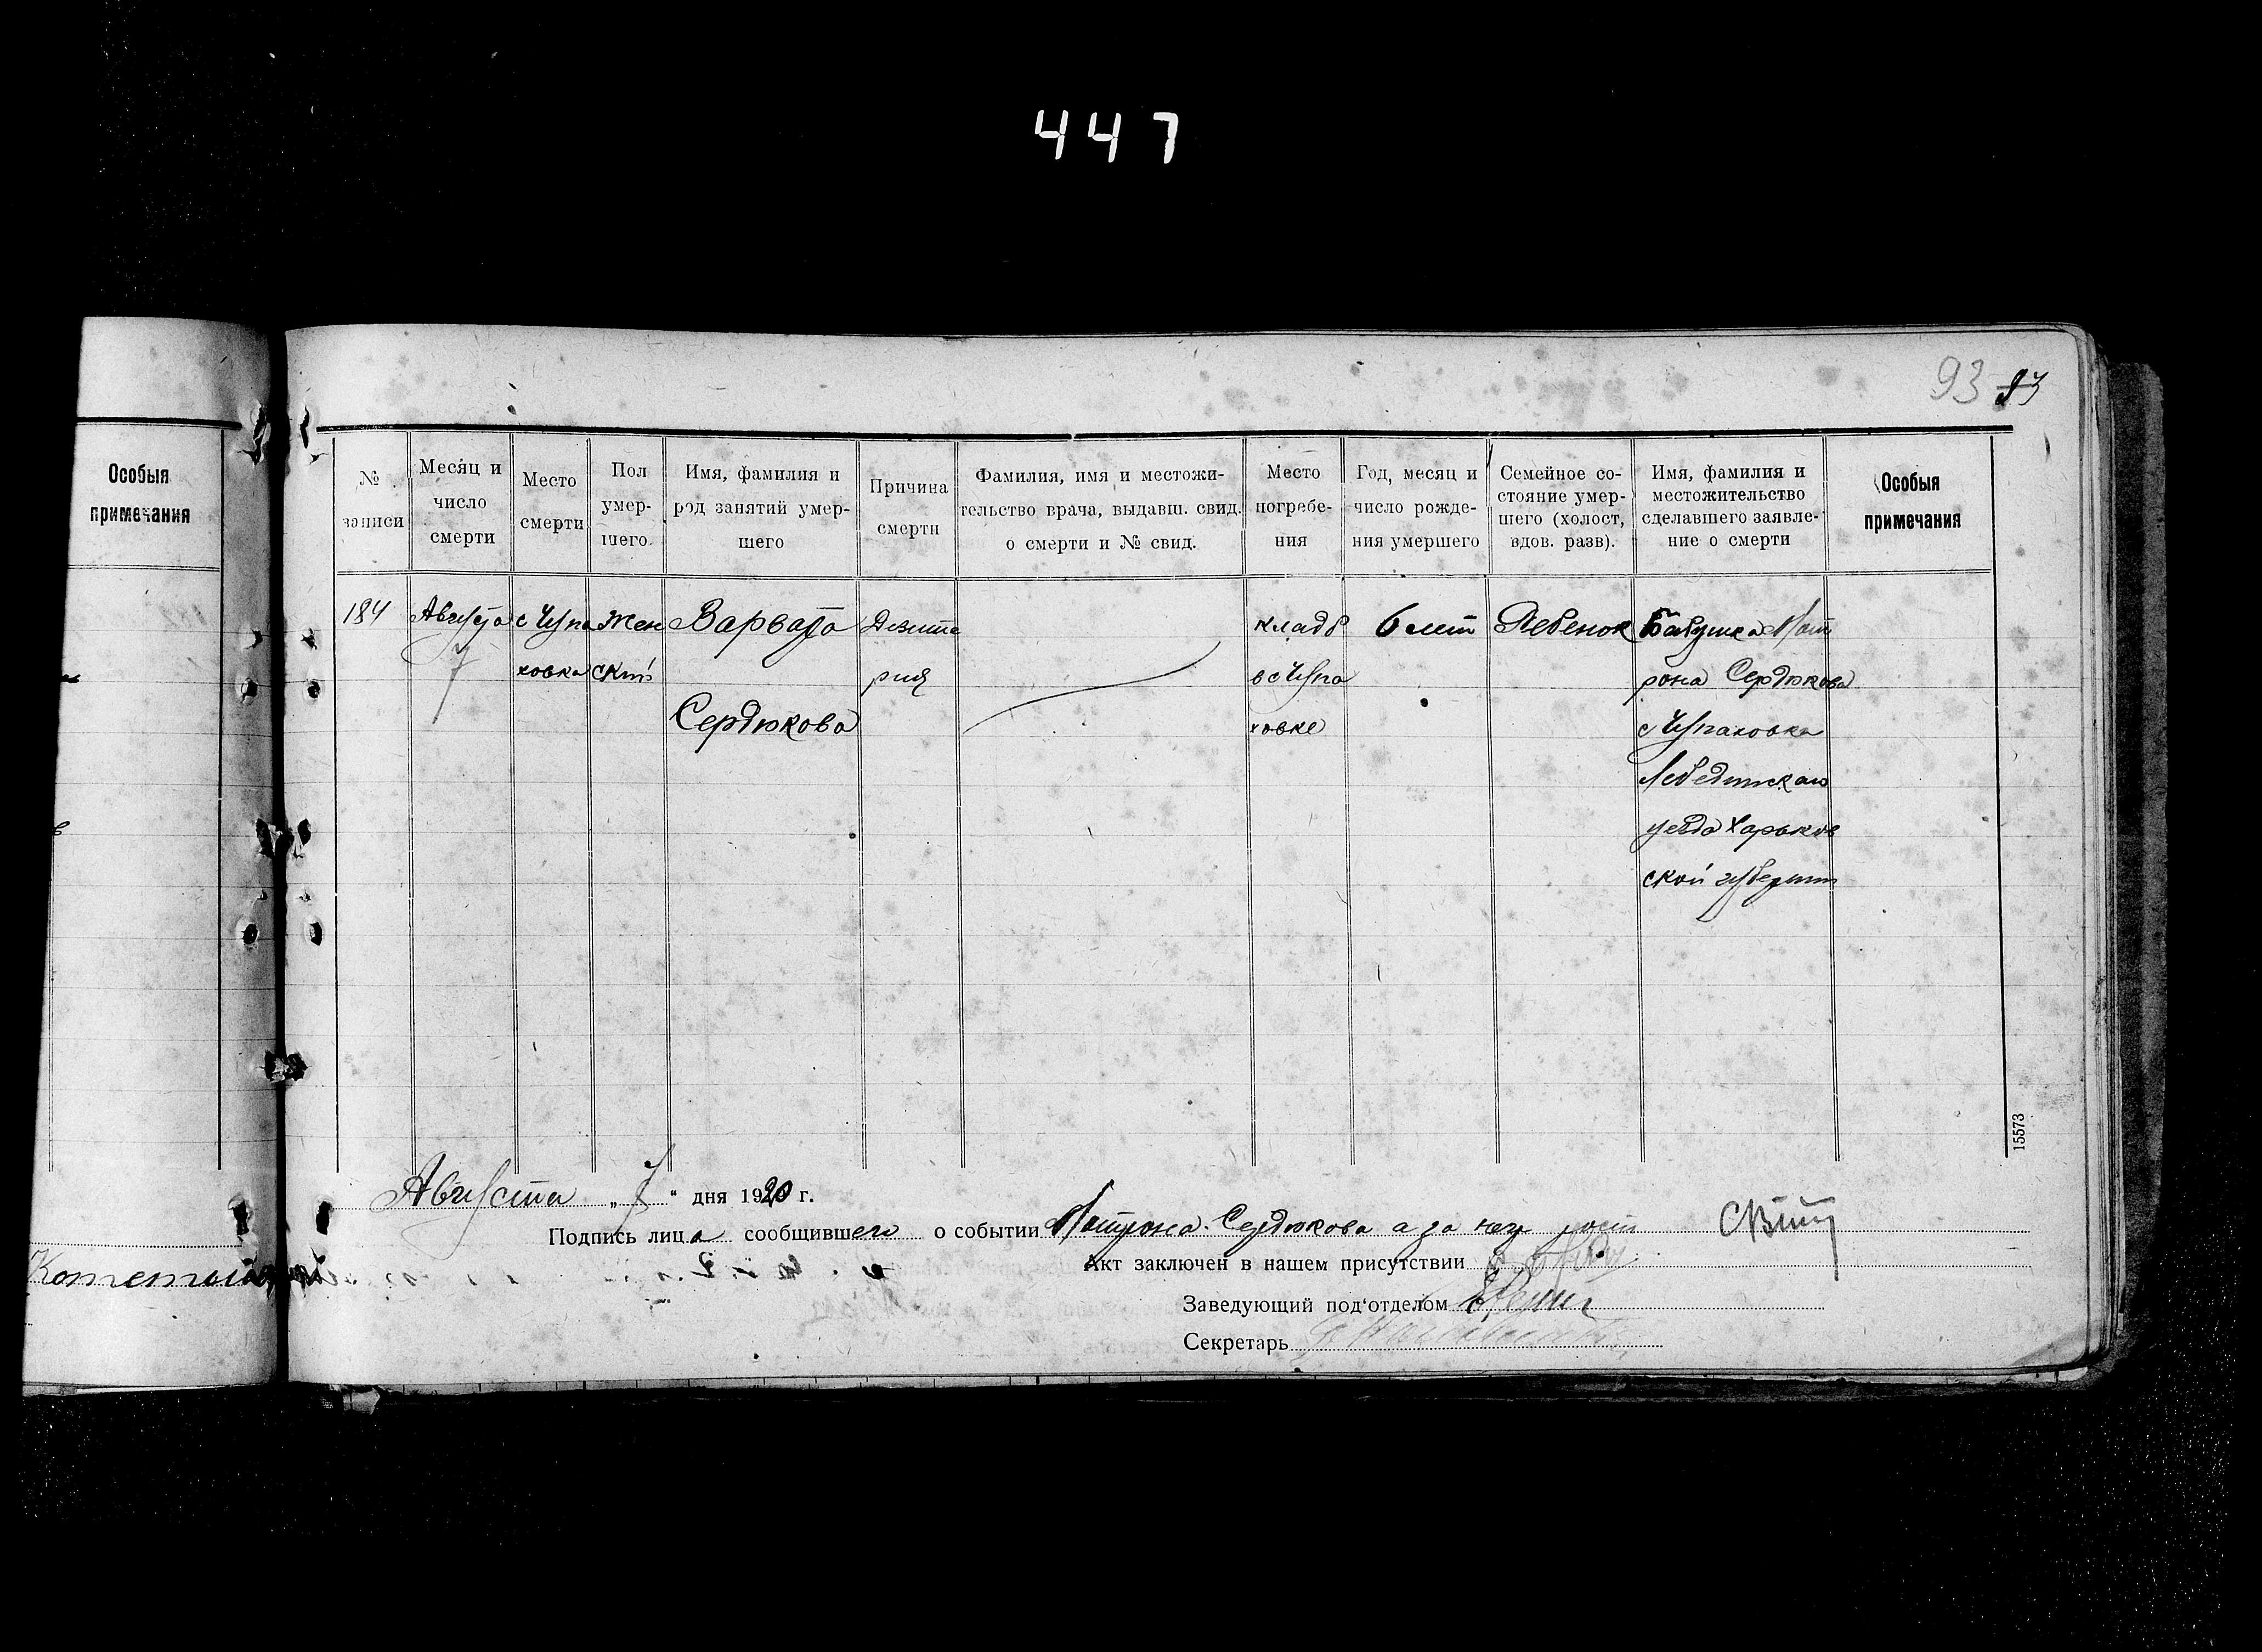 447
93 93
Особыя
примечания
№
записи
Месяц и
число
смерти
Место
смерти
Пол
умер-
шего.
Имя, фамилия и
род занятий умер-
шего
Причина
смерти
Фамилия, имя и местожи-
тельство врача, выдавш. свид.
о смерти и № свид.
Место
погребе-
ния
Год, месяц и
число рожде-
ния умершего
Семейное со-
стояние умер-
шего (холост,
вдов. разв).
Имя, фамилия и
местожительство
сделавшего заявле-
ние о смерти
Особыя
примечания
184
Августа
7
с Чупа
ховка
Жен
ский
Варвара
Сердюкова
Дизите
рия
кладб
в с Чупа
ховке
6 лет
Ребенок
Бабушка Мат
рона Сердюкова
с Чупаховка
Лебединскаго
уезда Харьков
ской губернии
15573
Августа „ 7 “ дня 1920 г.
Подпись лица сообщившего о событии Матрона Сердюкова а за нея
Акт заключен в нашем присутствии
Заведующий под‘отделом
Секретарь